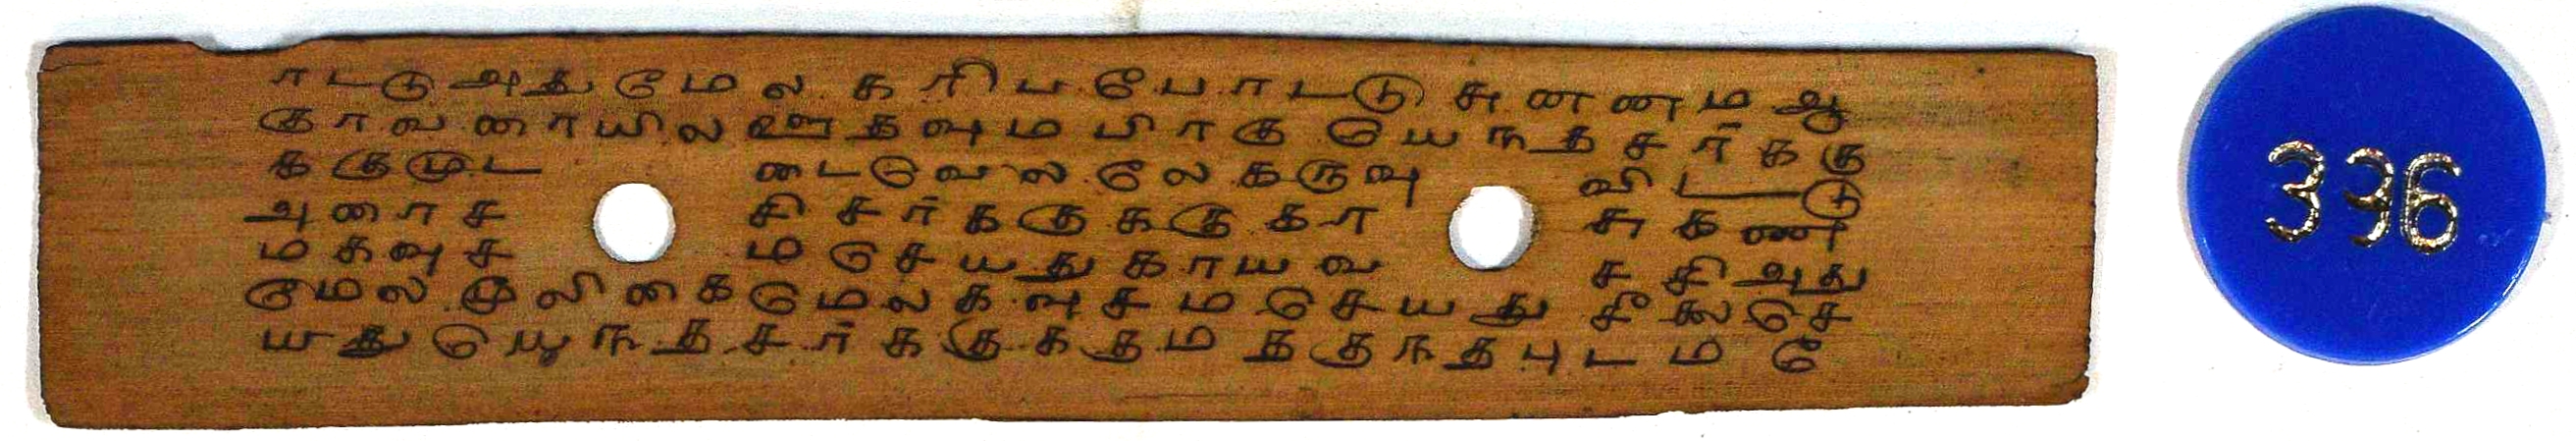 ாடடு அது மேல கரிய போடடு சுணணம ஆ
கு ாவனாயில ஊதவும பிாகு யெநத சர்ககு
ககுமுட டைடுவலலேகருவு விடடு
அனாச சிசர்ககுககுகா சுகண
மகவுச மசெயதுகாயவ சசிஅது
மேல மூலிகைமேலகவுசமசெயது சீலைசெ
யது யெநதசர்ககுகதம தகுநதபுடம ே
336